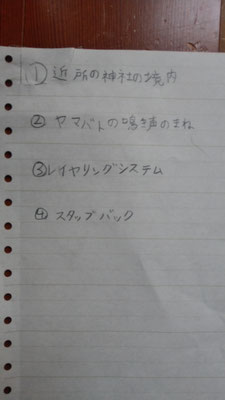 ①近所の神社の境内
②ヤマバトの鳴き声のまね
③レイヤリングシステム
④スタッフバック